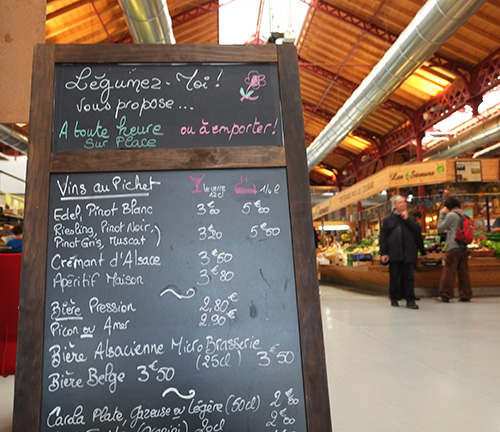 Légumez-Moi!
vous propose...
A toute heure ou à emporter!
Sur Place
Vins au Pichet le verre 12cl 1/4 l
Edel, Pinot Blanc 3€00 5€00
Riesling, Pinot Noir,
Pinot Gris, Muscat) 3€20 5€50
Crémant d'Alsace 3€50
Apéritif Maison 3€80
Bière Pression 2,80€
Picon ou Amer 2.90€
Bière Alsacienne Micro Brasserie
(25cl) 3€50
Bière Belge 3€50
Carola Plate, Gazeuse ou Légère (50cl) 2€
20cl 2€
Les Saveurs